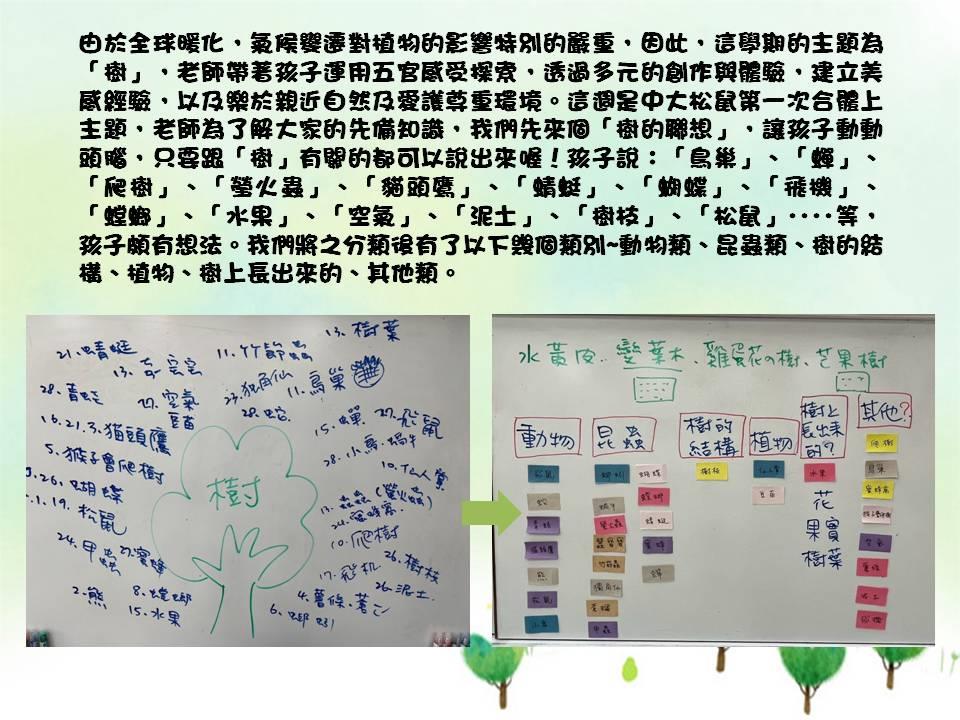 由於全球暖化，氣候變遷對植物的影響特別的嚴重，因此，這學期的主題為
「樹」，老師帶著孩子運用五官感受探索，透過多元的創作與體驗，建立美
感經驗，以及樂於親近自然及愛護尊重環境。這週是中大松鼠第一次合體上
主題，老師為了解大家的先備知識，我們先來個「樹的聯想」，讓孩子動動
頭腦，只要跟「樹」有關的都可以說出來喔！孩子說：「鳥巢」、「蟬」、
「爬樹」、「螢火蟲」、「貓頭鷹」、「蜻蜓」、「蝴蝶」、「飛機」、
「螳螂」、「水果」、「空氣」、「泥土」、「樹枝」、「松鼠」‥‥等，
孩子頗有想法。我們將之分類後有了以下幾個類別~動物類、昆蟲類、樹的結
構、植物、樹上長出來的、其他類。
13. 樹葉
21. 蜻蜓
11. 竹節蟲
23. 独角仙
11. 鳥巢
28. 青蛙
27. 空氣
28. 蛇
豆苗
15. 蟬
27. 飛鼠
16.21.3. 貓頭鷹
28. 小鳥
蝸牛
5. 猴子會爬樹
10. 仙人掌
26. 蝴蝶
(螢火蟲)
1.19. 松鼠
樹
10. 爬樹
24. 甲虫
27. 蜜蜂
17. 飛机
26. 樹枝
2. 熊
8. 螳螂
26. 泥土
15. 水果
4. 薯條
水黃皮、變葉木、雞蛋花の樹、芒果樹
動物
昆蟲
樹的
結構
植物
樹上
長出來
的?
其他?
爬樹
松鼠
小鳥
蝴蝶
螳螂
蜻蜓
蜜蜂
蟬
獨角仙
甲蟲
樹枝
仙人掌
豆苗
水果
花
果實
樹葉
鳥巢
空氣